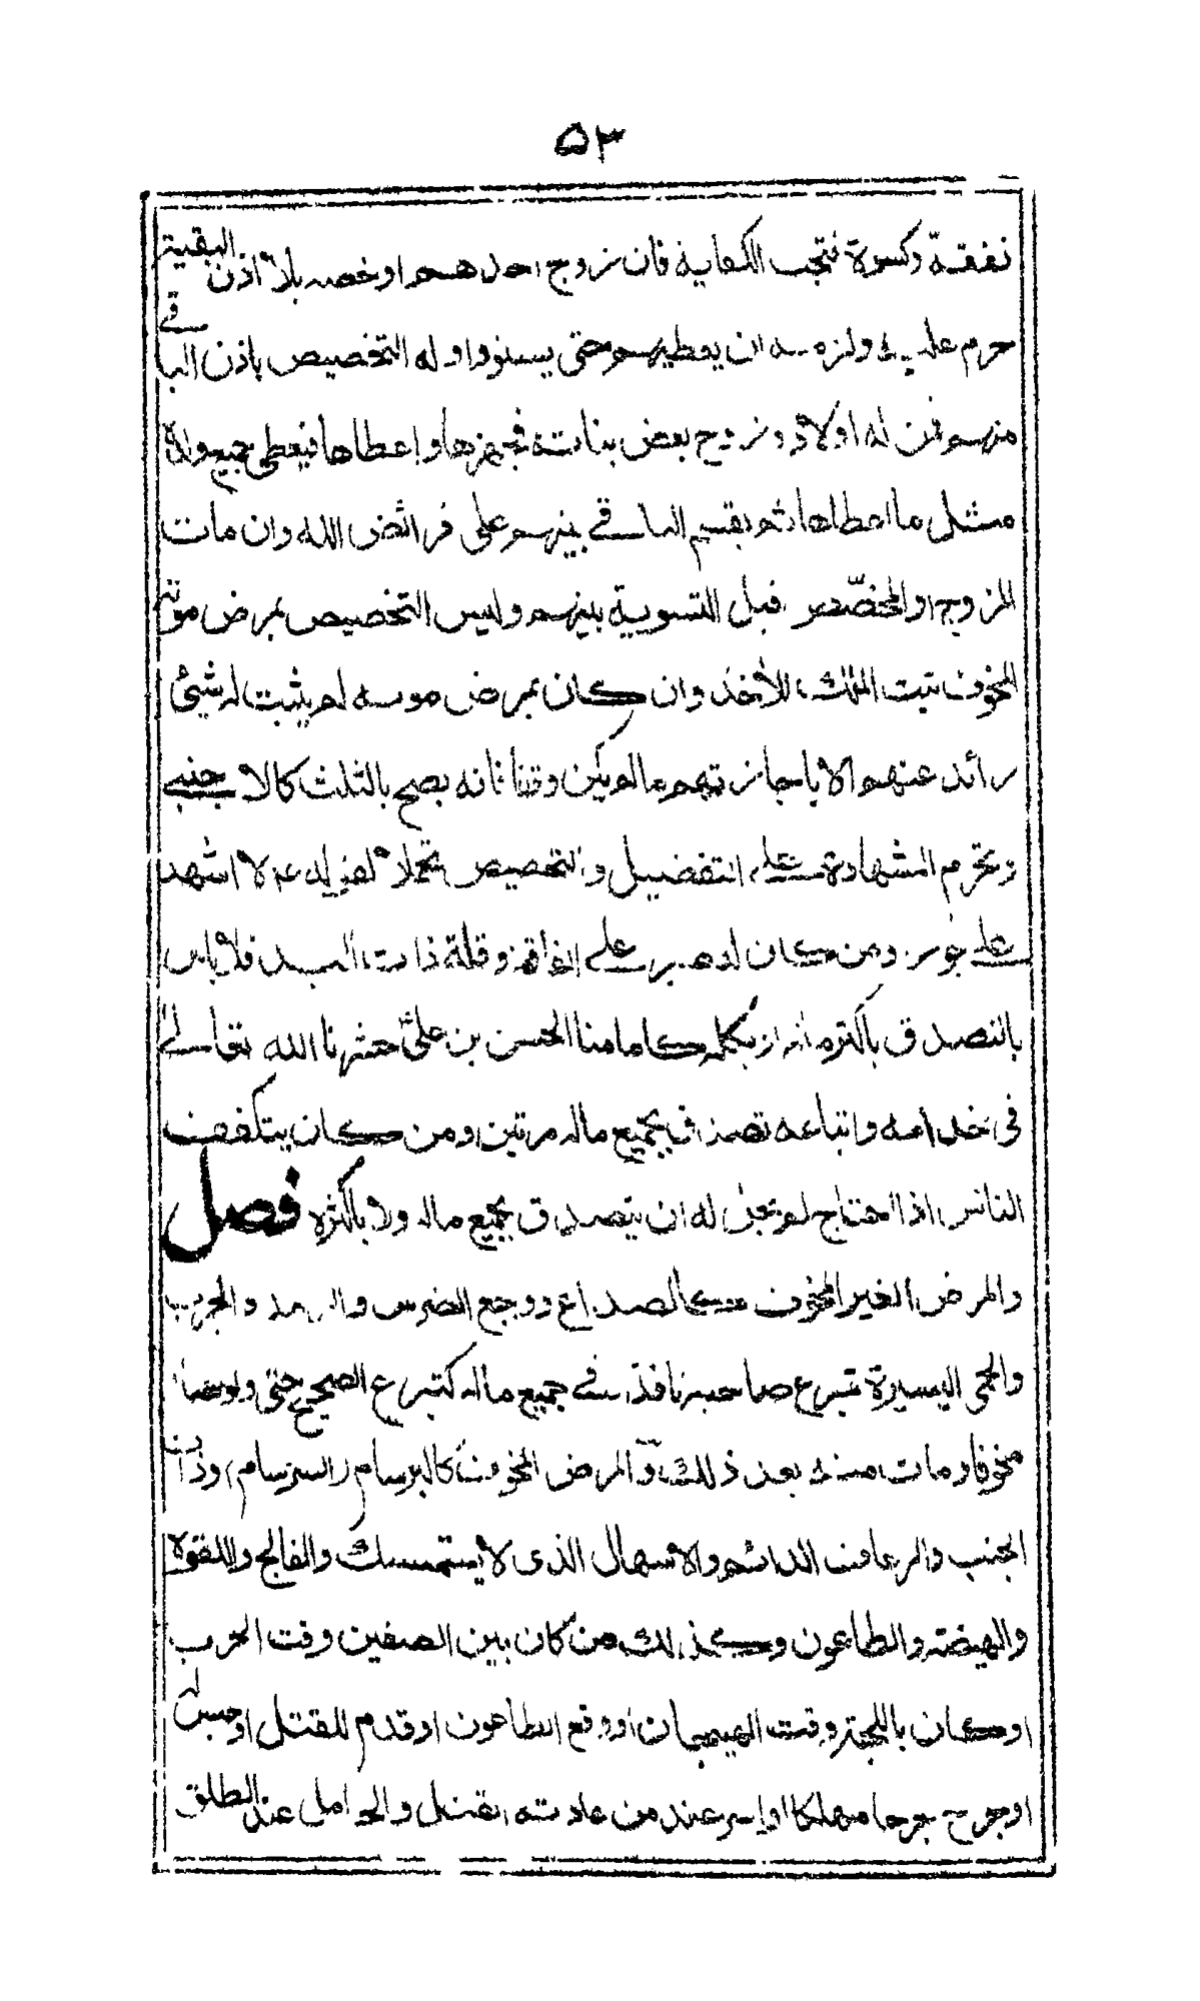 ٥٣
نفقة وكسوة فتجب الكفاية فان زوج احدهم او خصه بلا اذن البقية
حرم عليه ولزمه ان يعطيهم حتى يستووا وله التخصيص باذن الباقي
منهم فمن له اولاد وزوج بعض بناته فجهزها واعطاها فيعطى جميع ولده
مثل ما اعطاها ثم يقسم الباقي بينهم على فرائض الله وان مات
المزوج او المخصص قبل التسوية بينهم وليس التخصيص بمرض موته
المخوف ثبت الملك للأخذ وان كان بمرض موته لم يثبت له شيئ
زائد عنهم الا باجازتهم مالم يكن وقفا فانه يصح بالثلث كالاجنبي
وتحرم الشهادة على التفضيل والتخصيص تحملا لا اشهد
على جور ومن كان له صبر على الفاقة وقلة ذات اليد فلا باس
بالتصدق باكثر ماله او بكله كامامنا الحسن بن علي حشرنا الله تعالى
في خدامه واتباعه تصدق بجميع ماله مرتين ومن كان يتكفف
الناس اذا احتاج لم يجز له ان يتصدق بجميع ماله ولا باكثره فصل
والمرض الغير المخوف كالصداع ووجع الضرس والرمد والجرب
والحمى اليسيرة تبرع صاحبه نافذ في جميع ماله كتبرع الصحيح حتى ولو صار
مخوفا ومات منه بعد ذلك والمرض المخوف كالبرسام والسرسام وذات
الجنب والرعاف الدائم والاسهال الذى لا يستمسك والفالج واللقوة
والهيضة والطاعون وكذلك من كان بين الصفين وقت الحرب
او كان باللجة وقت الهيجان او وقع الطاعون او قدم للقتل او حبس له
او جرح جرحا مهلكا او اسر عند من عادته القتل والحامل عند الطلق